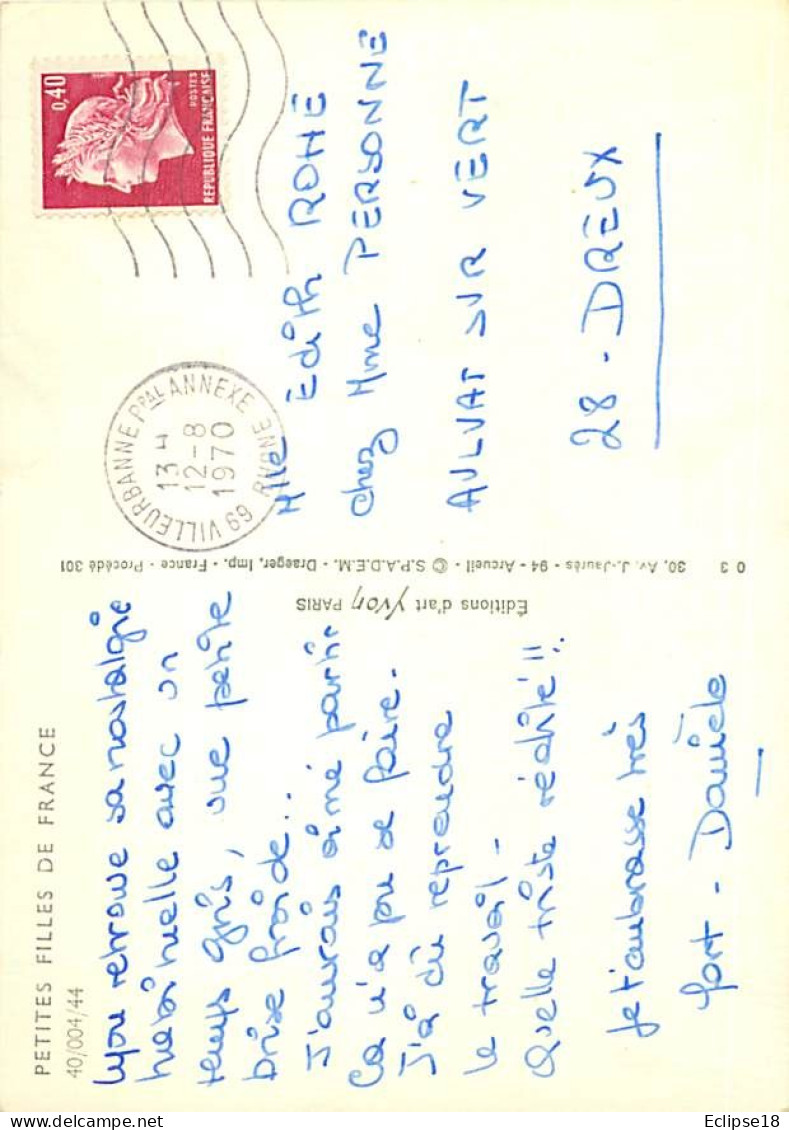 PETITES FILLES DE FRANCE
40/004/44
Lyon retrouve sa nostalgie
habituelle avec un
temps gris, une petite
brise froide...
J'aurais aimé partir
Ca n'a pu se faire.
J'ai dû reprendre
le travail -
Quelle triste réalité!!.
Je t'embrasse très
fort - Danièle
Éditions d'art Yvon PARIS
0 3 30, Av. J.-Jaurès - 94 - Arcueil - © S.P.A.D.E.M. - Draeger, Imp. - France - Procédé 301
0,40
POSTES
REPUBLIQUE FRANÇAISE
69 VILLEURBANNE Ppal ANNEXE RHONE
13 H
12-8
1970
Mlle Édith ROHÉ
chez Mme PERSONNE
AULVAT SUR VERT
28 - DREUX
Eclipse18